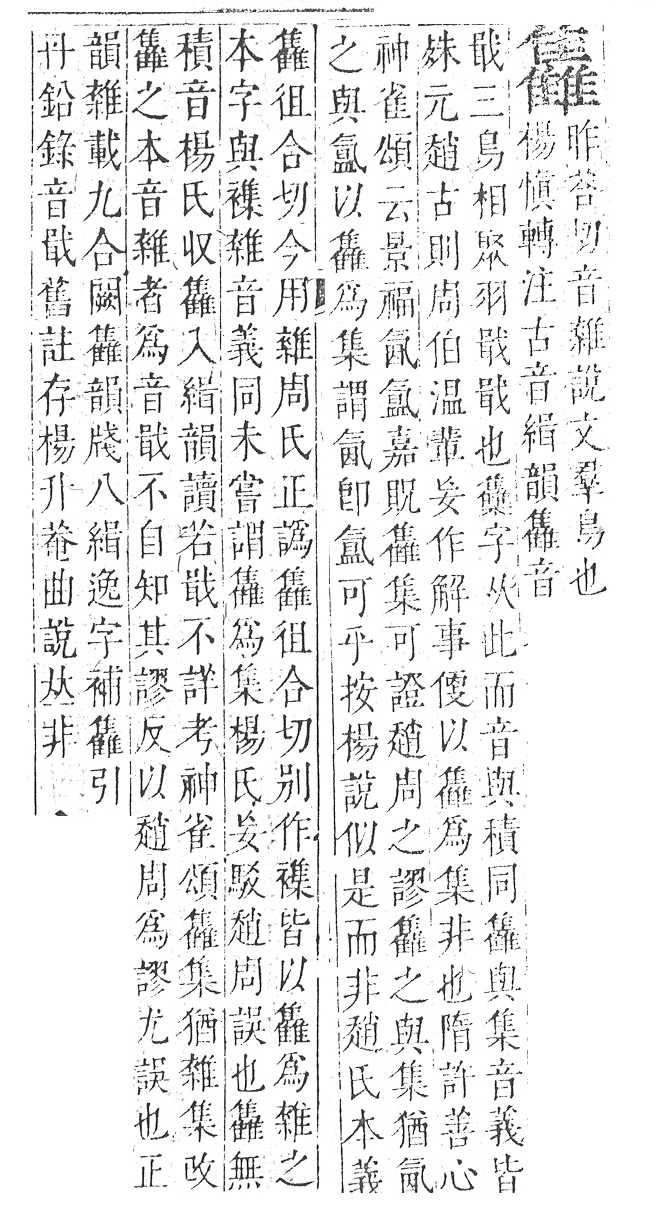 雥
昨荅切音雜說文羣鳥也
楊慎轉注古音緝韻雥音
戢三鳥相聚羽戢戢也雧字从此而音與積同雥與集音義皆
殊元趙古則周伯温輩妄作解事傻以雥爲集非也隋許善心
神雀頌云景福氤氳嘉貺雥集可證趙周之謬雥之與集猶氤
之與氳以雥爲集謂氤卽氳可乎按楊說似是而非趙氏本義
雥徂合切今用雜周氏正譌雥徂合切别作襍皆以雥爲雜之
本字與襍雜音義同未嘗謂雥爲集楊氏妄駁趙周誤也雥無
積音楊氏收雥入緝韻讀若戢不詳考神雀頌雥集猶雜集改
雥之本音雜者爲音戢不自知其謬反以趙周爲謬尤誤也正
韻雜載九合闕雥韻牋八緝逸字補雥引
丹鉛錄音戢舊註存楊升菴曲說𠀤非